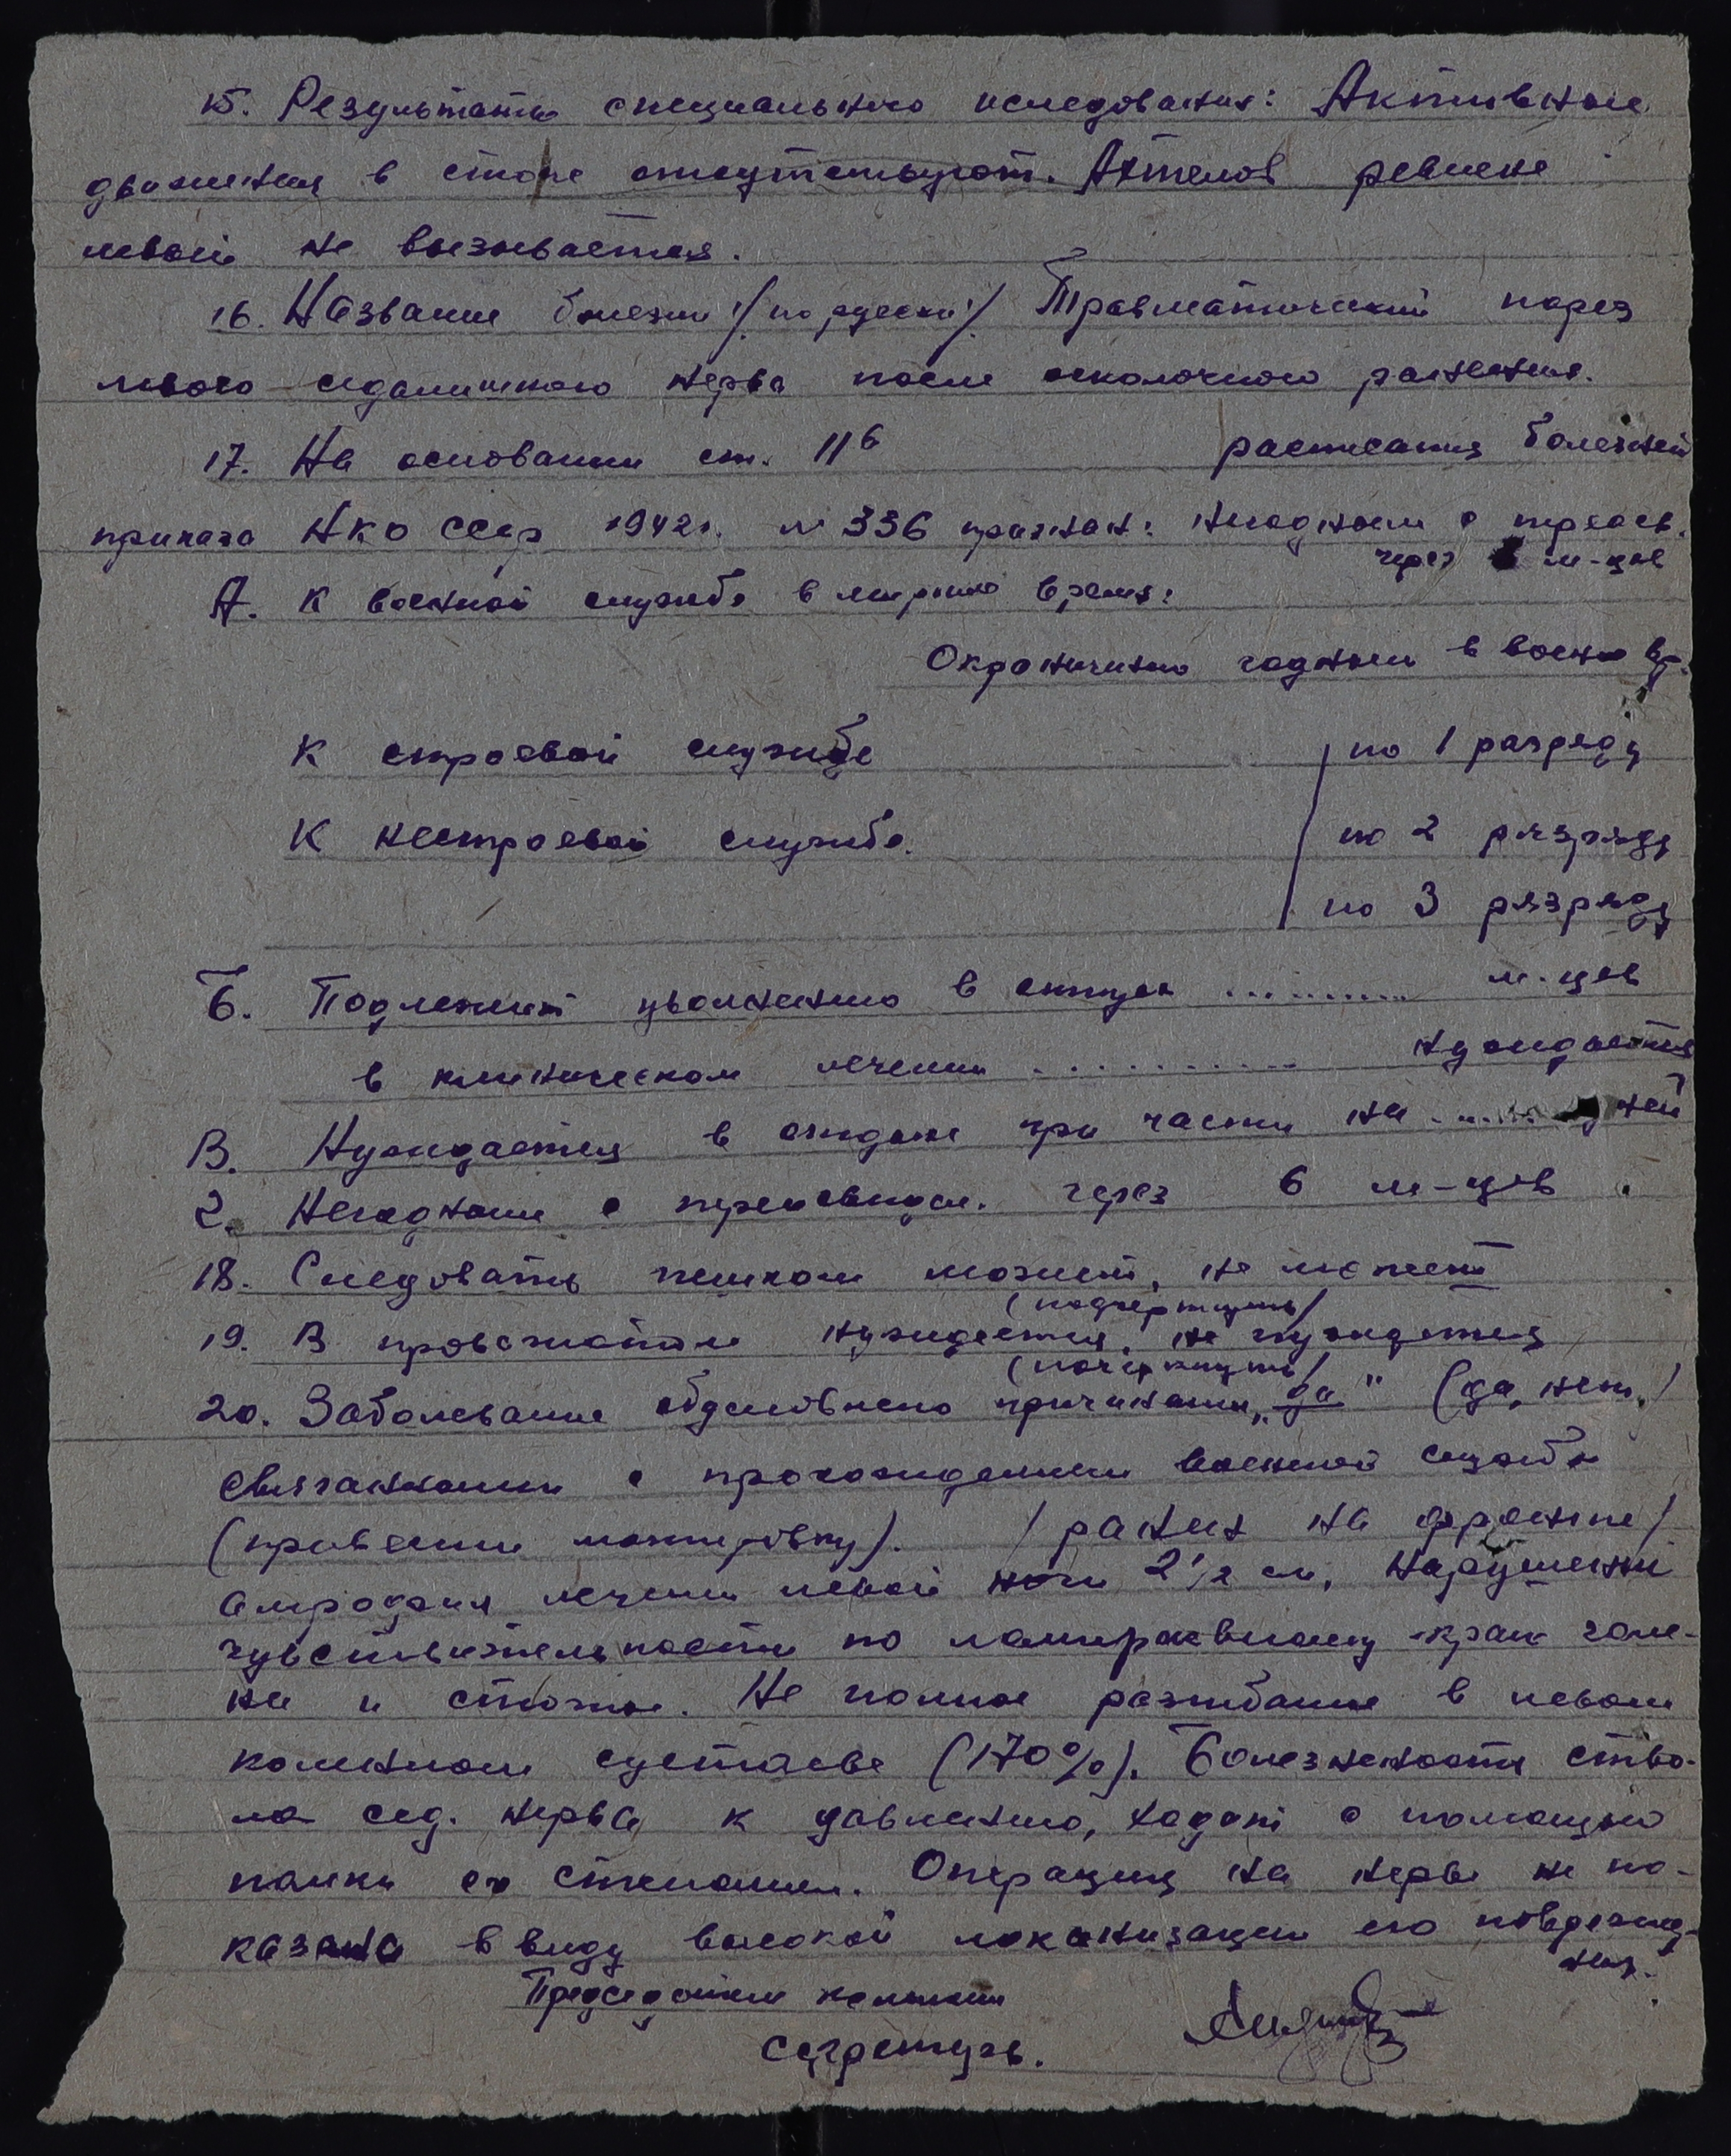 15. Результаты специального иследования: Активные
движения в стопе отсутствуют. Ахтелов рефлекс
левый не вызывается.
16. Название болезни /по русски/ Травматический парез
левого седалишного нерва после осколочного ранения.
17. На основании ст. 11б расписания болезней
приказа НКО СССР 1942г. № 336 признан: негодным с переосв.
через м-цев
А. К военной службе в мирное время:
Ограничено годным в военное вр.
К строевой службе по 1 разряду
К нестроевой службе. по 2 разряду
по 3 разряду
Б. Подлежит увольнению в отпуск .......... м-цев
в клиническом лечении .......... нуждается
В. Нуждается в отдыхе при части на ...... дней
2. Негодным с переосвидет. через 6 м-цев.
18. Следовать пешком может, не может
(подчеркнуть)
19. В провожатом нуждается, не нуждается
(почеркнуть)
20. Заболевание обусловлено причинами „да" (да, нет)
связанными с прохождением военной службы
(привести мотивировку). /ранен на фронте/
Атрофия левой ноги 2 1/2 см, Нарушений
чувствительности по краю голе-
ни и стопы. Не полное разгибание в левом
коленном суставе (170%). Болезненность ство-
ла сед. нерва к давлению, ходит с помощью
палки со Операция на нерве не по-
казана ввиду высокой локализации его поврежде-
ния.
Председатель комиссии
Секретарь.